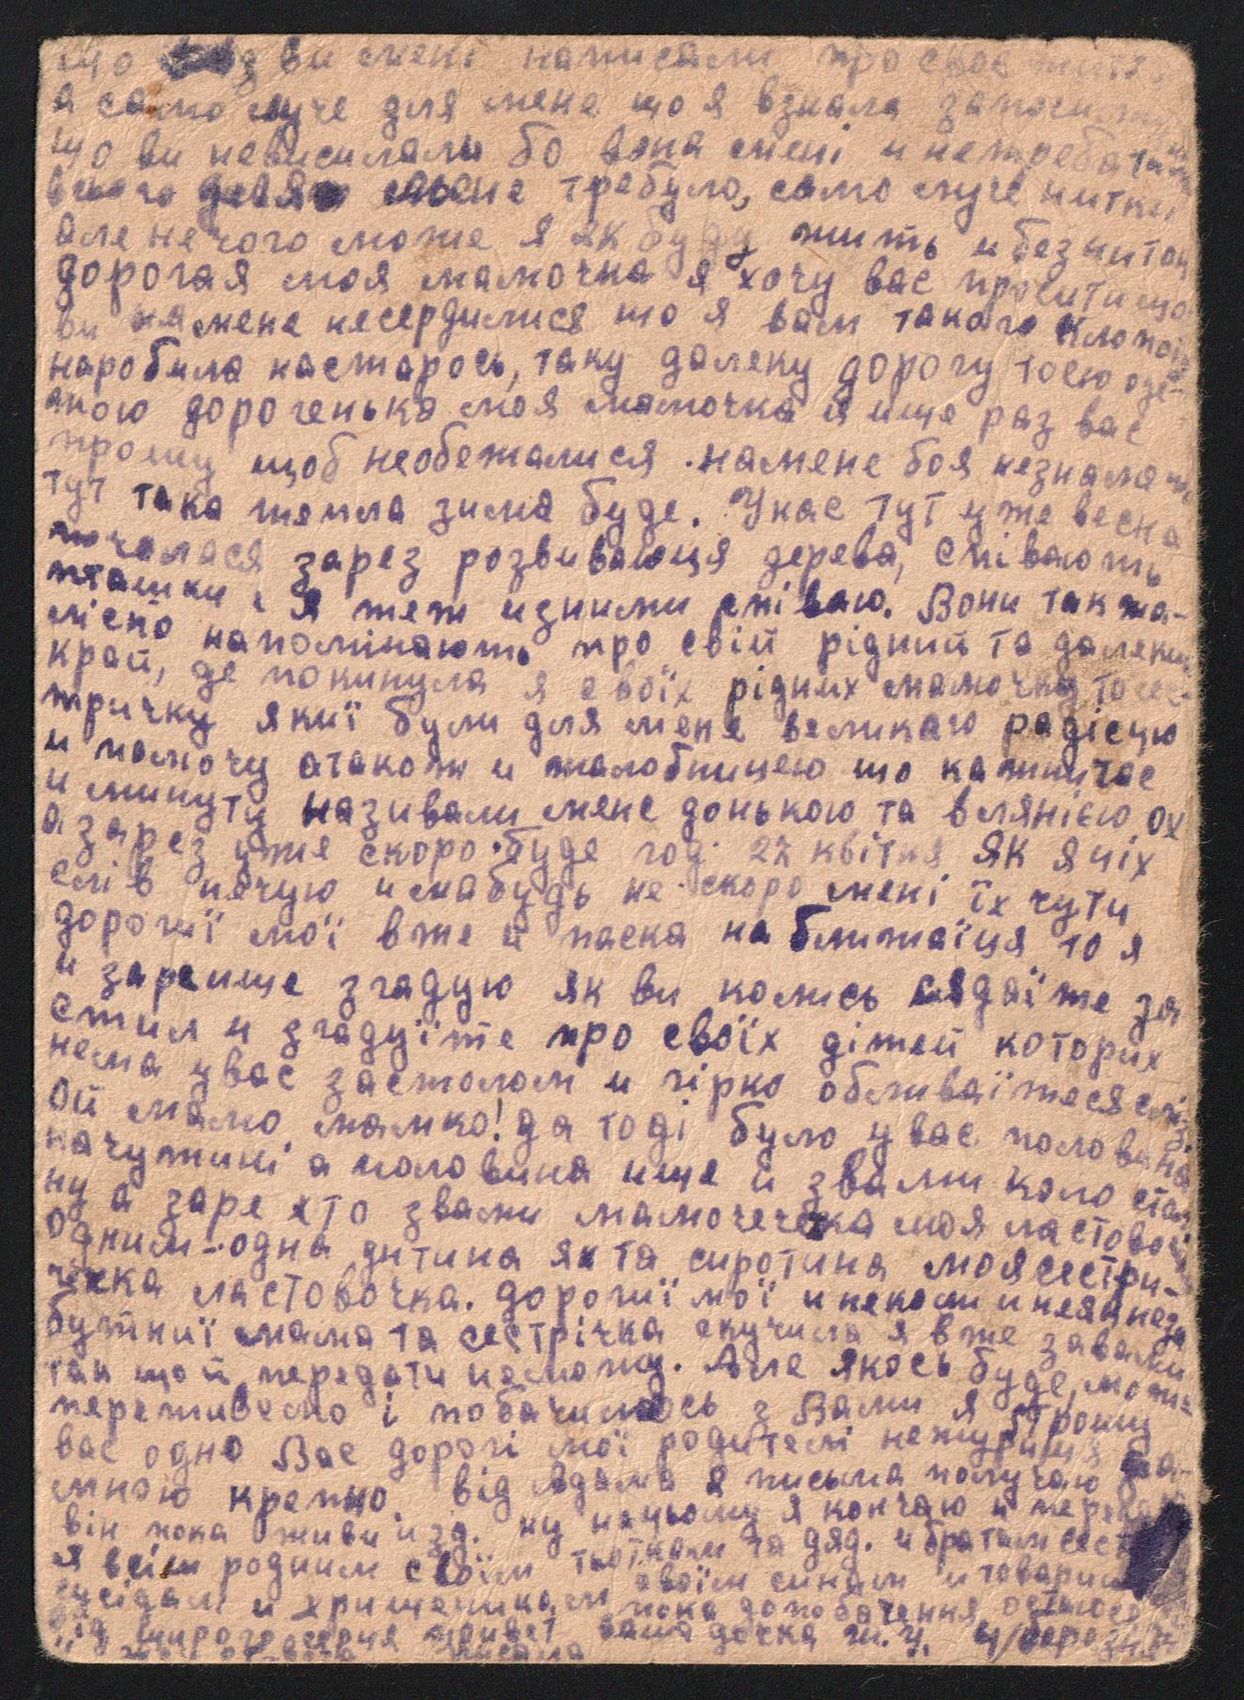 що ви мені написали про своє життя
а само луче для мене що я взнала
що ви невисилали бо вона мені и нетреба та
всього мене требуло, само луче нитки
але нечого може я як буду жить и без ниток
дорогая моя мамочка я хочу вас просити що
ви на мене несердилися що я вам такого клопоту
наробила настарось, таку далеку дорогу тоею оде-
жою дорогенька моя мамочка я ище раз вас
прошу щоб необежалися намене боя незнала що
тут така тепла зима буде. Унас тут уже весна
почалася зарез розвиваюця дерева, співають
пташки і я теж изними співаю. Вони так жа-
лісно напомінають про свій рідний та далекий
край, де покинула я своїх рідних мамочку та сес-
тричку якиї були для мене великаю радісцю
и помочу атакож и жалобницею що кажний час
и минуту називали мене донькою та вслянією ох
а зарез уже скоро буде год 27 квітня як я ціх
слів нечую и мабудь не скоро мені їх чути
дорогиї мої вже и паска наближаїця то я
и зареище згадую як ви колись сядаїте за
стил и згадуїте про своїх дітей которих
нема увас застолом и гірко обливаїтеся слі
Ой мамо мамко! да тоді було увас половина
начужині а половина ище й звами коло стол
ну а заре хто звами мамочечка моя ластовоч
Одним-одна дитина як та сиротина моя сестри-
чка ластовочка. дорогиї мої и неколи неза
бутниї мама та сестрічка скучила я вже завами
так що й передати неможу. Але якось буде, може
переживемо і побачимось з Вами я прошу
вас одно Вас дорогі мої родителі нежуріця за-
мною крепко. від Адама я письма получаю
він пока живий изд. ну нацьому я кончаю и передаю
я всім родним своїм тьоткам та дяд. и братам сест
своїм синам и товариш
сусідам и хрищеникам пока допобачення остаюся
від щирого серця привет ваша дочка ж. ч. 4/березня
писала